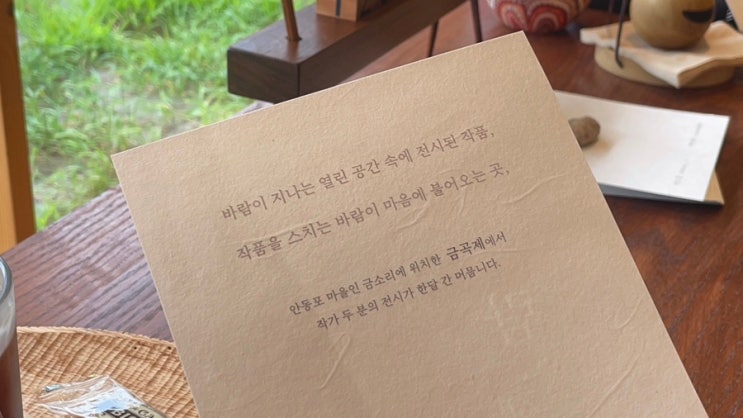 바람이 지나는 열린 공간 속에 전시된 작품,
작품을 스치는 바람이 마음에 불어오는 곳,
안동포 마을인 금소리에 위치한 금곡제에서
작가 두 분의 전시가 한달 간 머뭅니다.